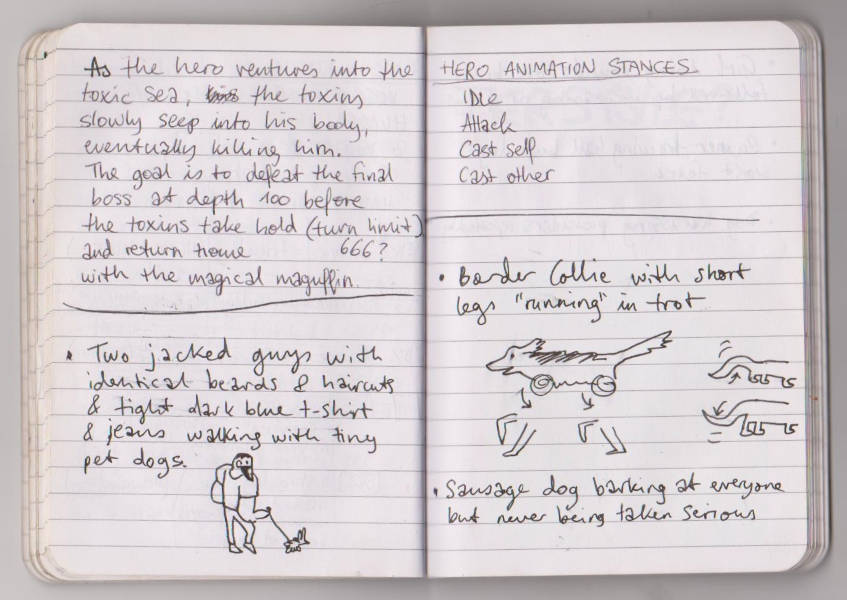 As the hero ventures into the
toxic sea, the toxins
slowly seep into his body,
eventually killing him.
The goal is to defeat the final
boss at depth 100 before
the toxins take hold (turn limit)
and return home 666?
with the magical maguffin.
• Two jacked guys with
identical beards & haircuts
& tight dark blue t-shirt
& jeans walking with tiny
pet dogs.
HERO ANIMATION STANCES
IDle
Attack
Cast self
Cast other
• Border Collie with short
legs "running" in trot
• Sausage dog barking at everyone
but never being taken serious